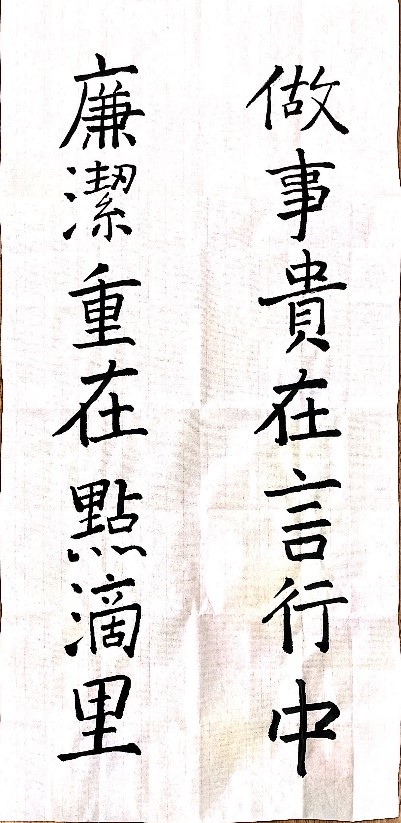 做事貴在言行中
廉潔重在點滴里